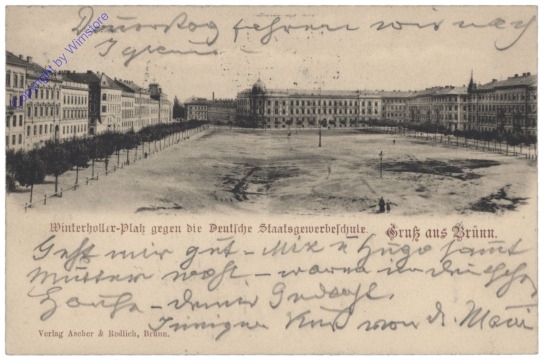 Donnerstag fahren wir nach
Iglau
copyright by Winstore
Winterholler-Platz gegen die Deutsche Staatsgewerbeschule.
Gruß aus Brünn.
Geht mir gut - Mix u Hugo samt
Mutter wohl - waren in
Hause - deiner Gedacht.
Inniger Kuß von d. Mari
Verlag Ascher & Redlich, Brünn.